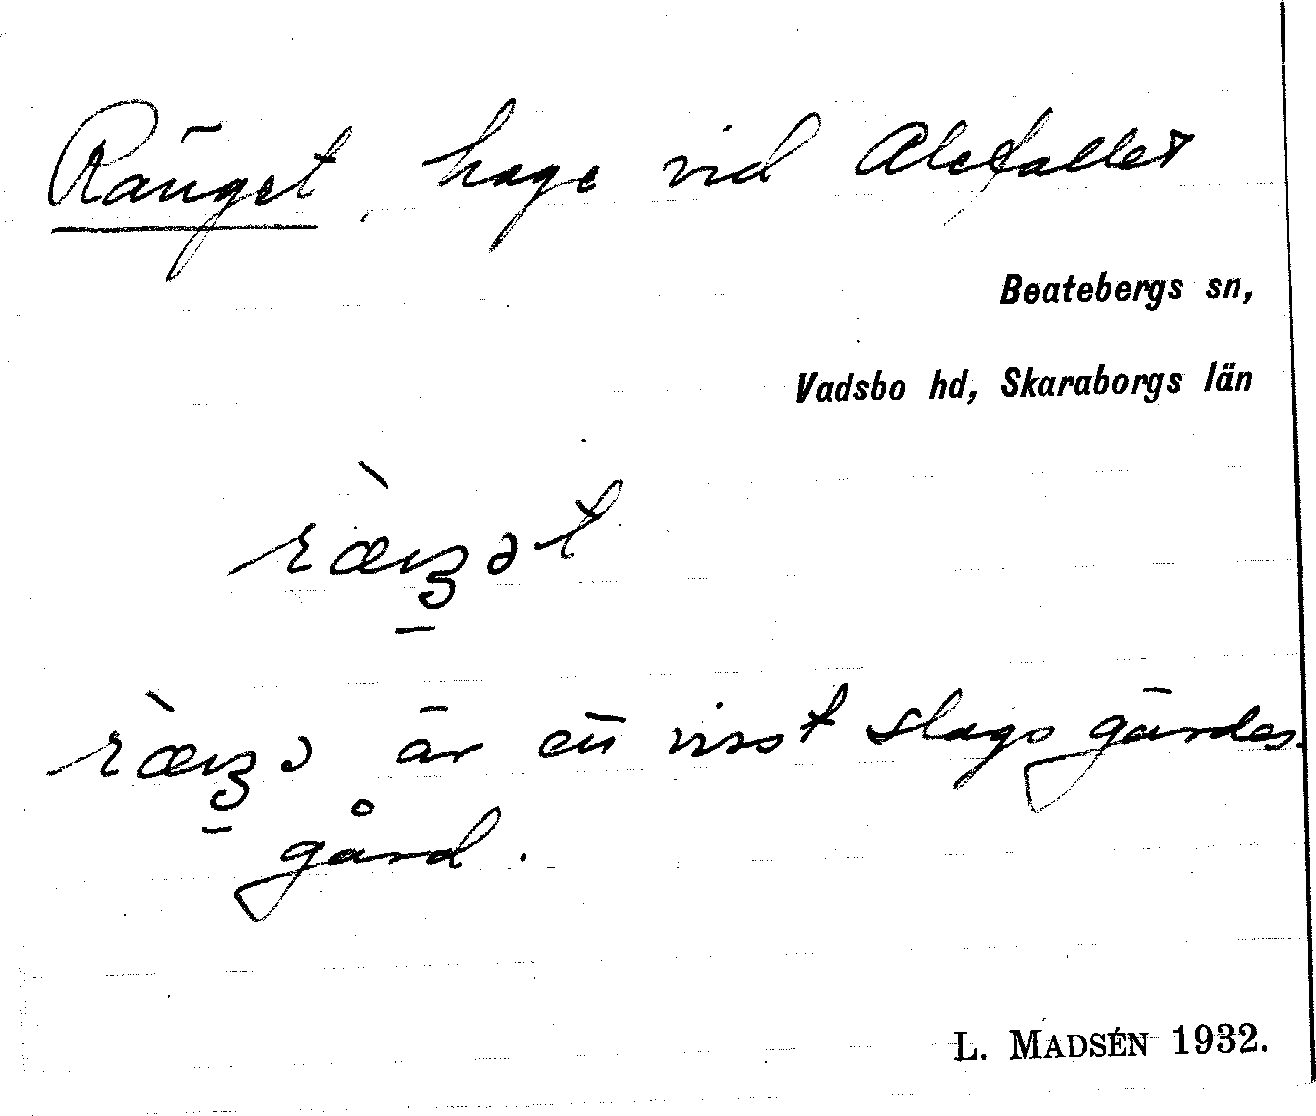 Ränget, hage vid Alefallet
Beatebergs sn,
Vadsbo hd, Skaraborgs län
ræŋət
ræŋə är ett visst slags gärdes-
gård.
L. MADSÉN 1932.